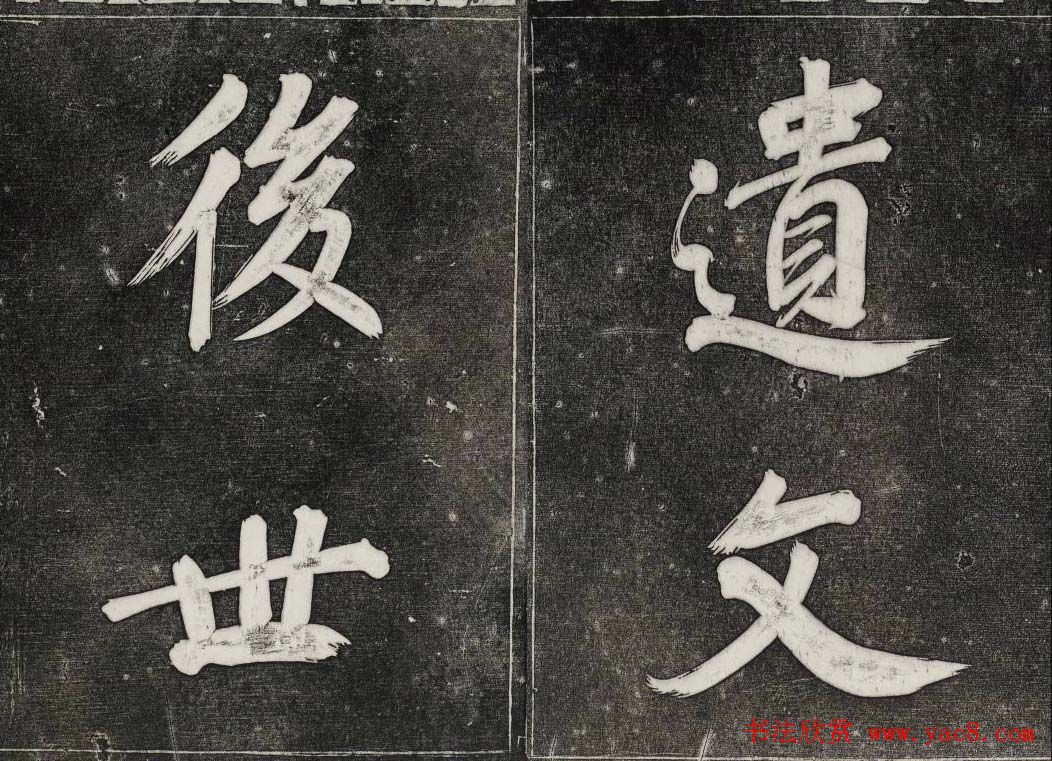 遺文
後世
书法欣赏 www.yac8.com